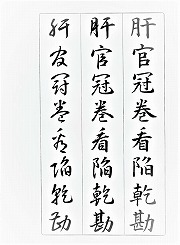 肝官冠巻看陥乾勘
肝官冠巻看陥乾勘
肝官冠巻看陥乾勘